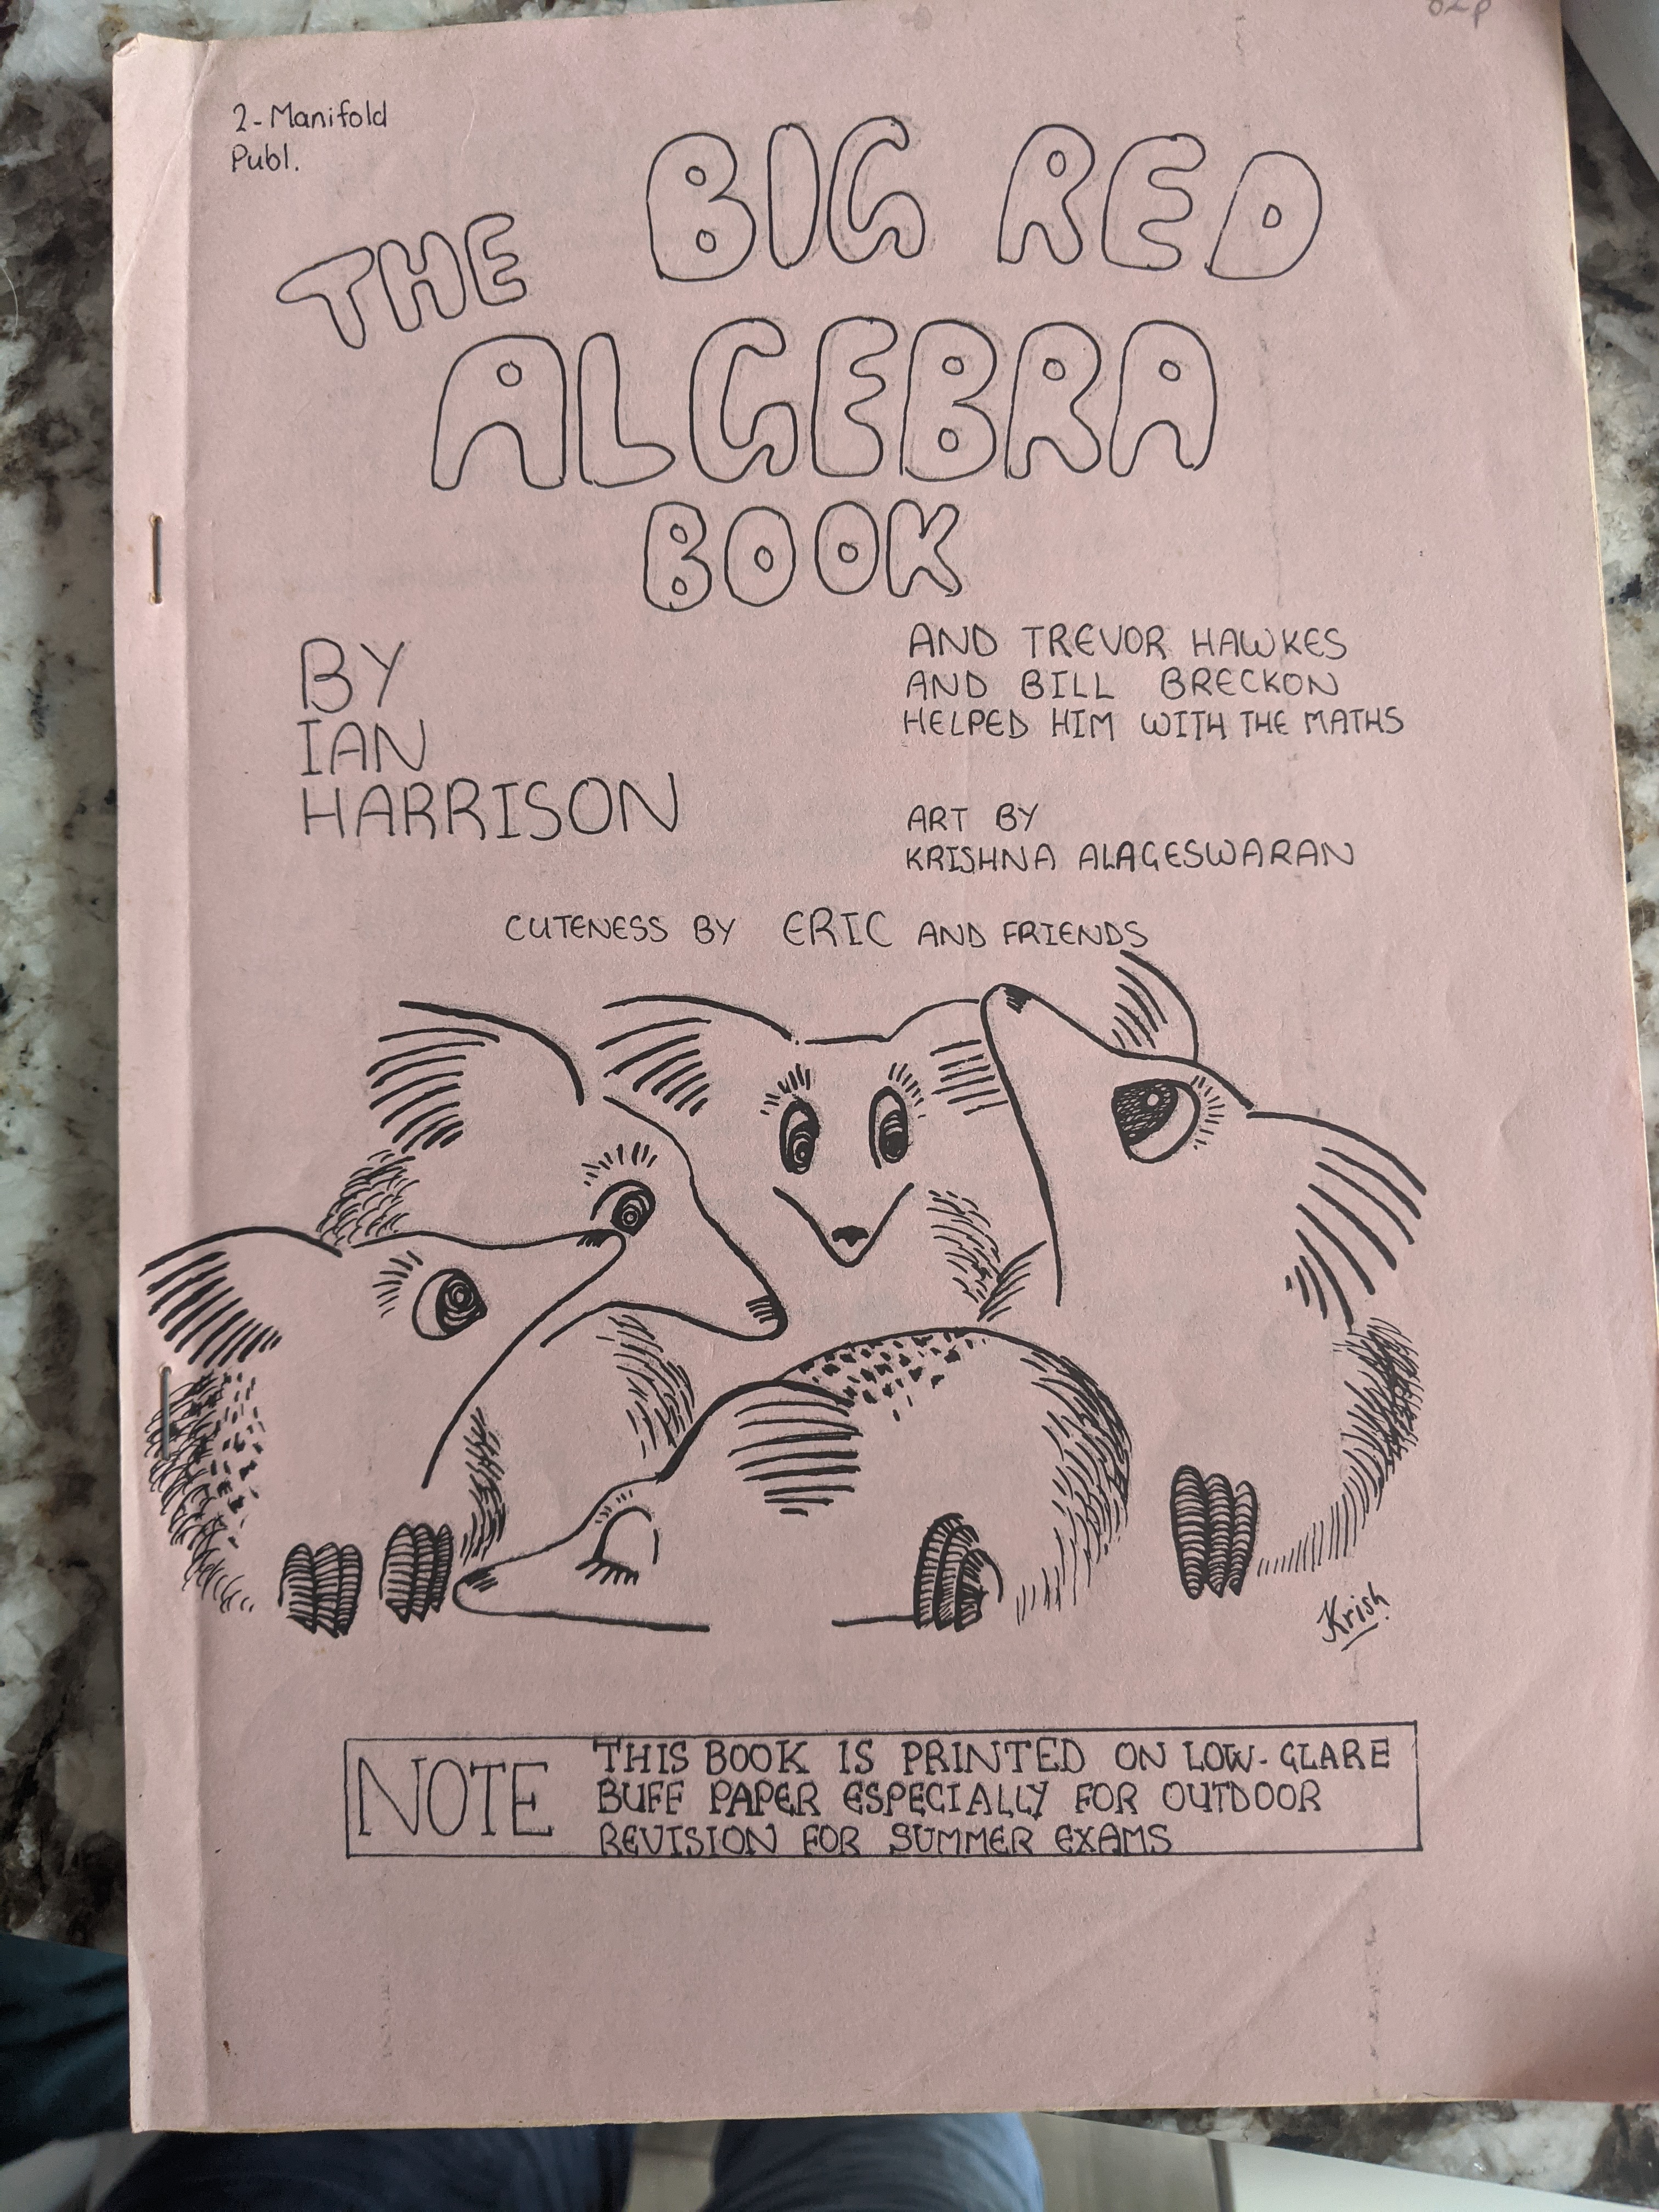 2-Manifold
Publ.
THE BIG RED
ALGEBRA
BOOK
BY
IAN
HARRISON
AND TREVOR HAWKES
AND BILL BRECKON
HELPED HIM WITH THE MATHS
ART BY
KRISHNA ALAGESWARAN
CUTENESS BY ERIC AND FRIENDS
Krish
NOTE
THIS BOOK IS PRINTED ON LOW-GLARE
BUFF PAPER ESPECIALLY FOR OUTDOOR
REVISION FOR SUMMER EXAMS